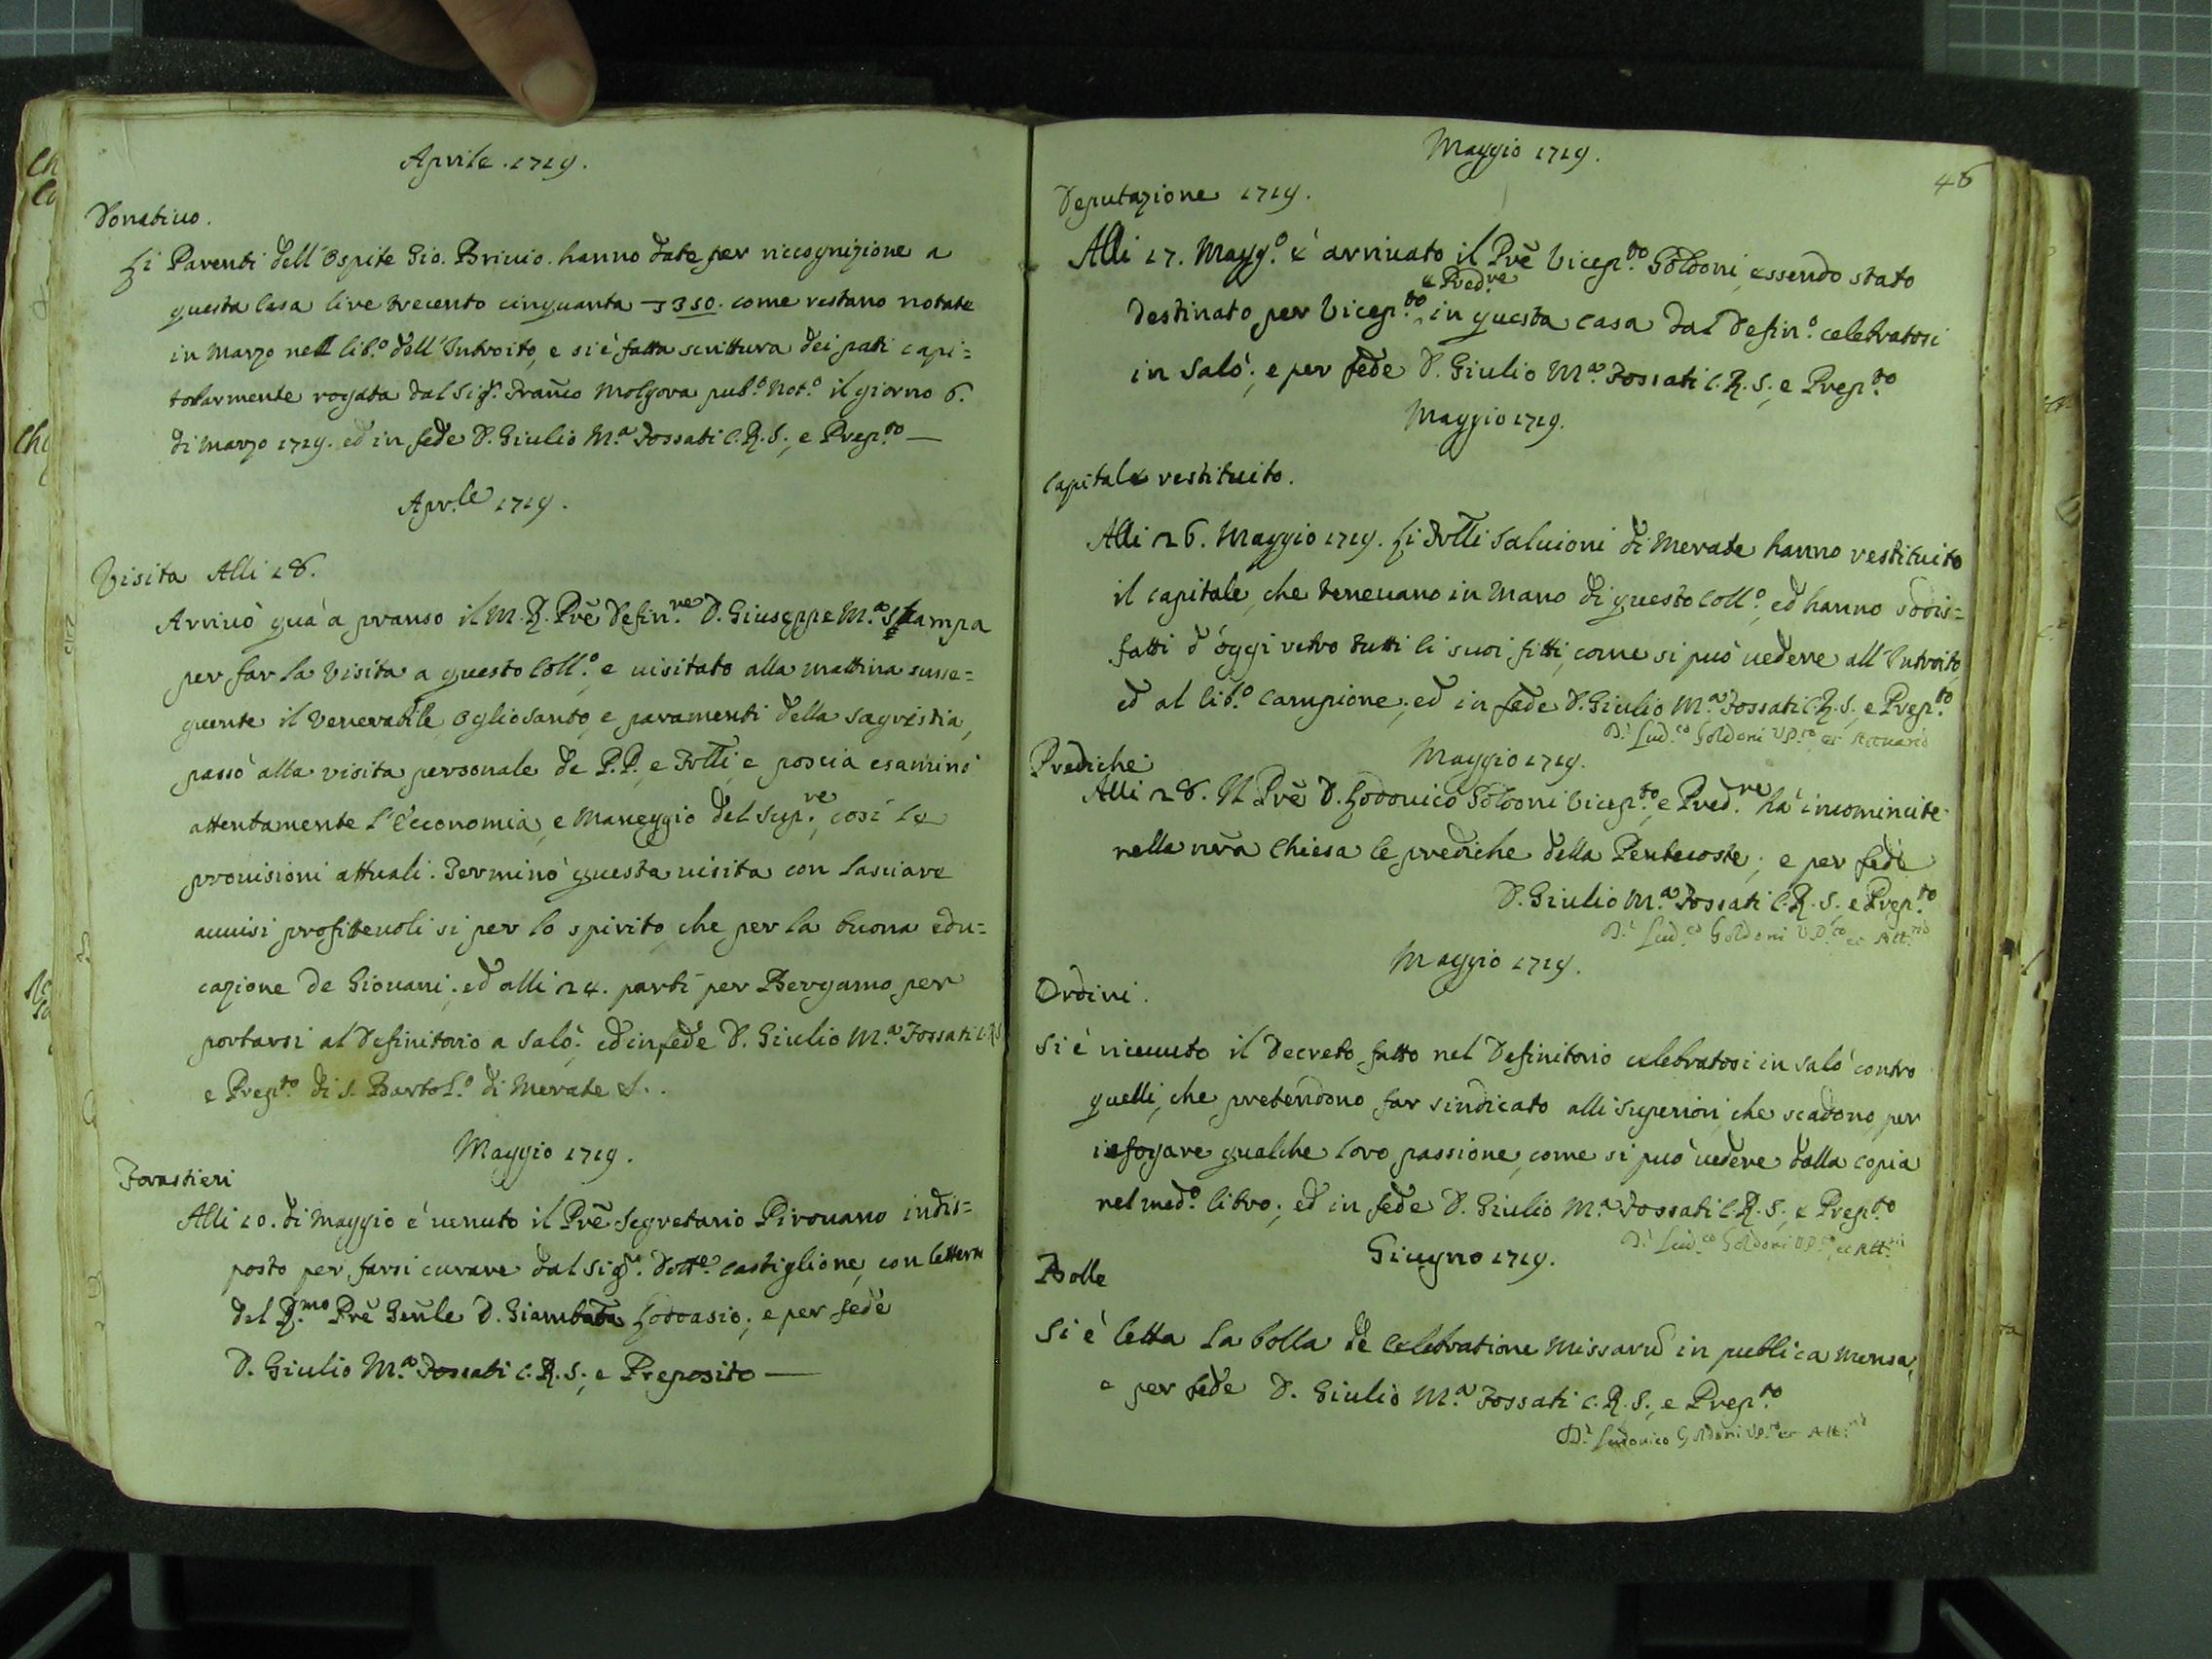 Aprile . 1719.
Donativo.
Li Parenti dell'Ospite Gio. Brivio. hanno dato per riccognizione a
questa Casa lire trecento cinquanta 350. come restano notate
in Marzo nell lib.o dell'Introito, e si è fatta scrittura dei pati capi=
tolarmente rogata dal Sig.r Franco Molgora pub.o Not.o il giorno 6.
di Marzo 1719. ed in fede D. Giulio M.a Fossati C.R.S., e Prep.to —
Apr.le 1719.
Visita Alli 18.
Arrivò quà a pranso il M. R. Prê Defin.re D. Giuseppe M.a Stampa
per far la Visita a questo Coll.o, e visitato alla mattina susse=
quente il Venerabile, Ogliosanto, e paramenti della Sagristia,
passò alla visita personale de P.P. e Frtlli, e poscia esaminò
attentamente l'Economia, e Maneggio del Sup.re, così le
provisioni attuali. Terminò questa visita con lasciare
avvisi profittevoli si per lo spirito, che per la buona edu=
cazione de Giovani; ed alli 24. parti per Bergamo per
portarsi al Definitorio a Salò; ed in fede D. Giulio M.a Fossati C.R.S.
e Prep.to di S. Bartol.o di Merate
Maggio 1719.
Forastieri
Alli 10. di Maggio è venuto il Prê Segretario Pirovano indis=
posto per farsi curare dal Sig.r Dott.e Castiglione, con lettera
del R.mo Prê Genle D. Giambatta Lodoasio; e per fede
D. Giulio M.a Fossati C.R.S., e Preposito —
46
Maggio 1719.
Deputazione 1719.
Alli 17. Magg.o è arrivato il Prê Vicep.to Goldoni, essendo stato
e Pred.re
destinato per Vicep.to in questa Casa dal Defin.o celebratosi
in Salò; e per fede D. Giulio M.a Fossati C.R.S., e Prep.to
Maggio 1719.
Capitale restituito.
Alli 26. Maggio 1719. Li Frtlli Salvioni di Merate hanno restituito
il capitale, che tenevano in Mano di questo Coll.o, ed hanno sodis=
fatti d'oggi retro tutti li suoi fitti, come si può vedere all'Introito,
ed al lib.o Campione; ed in fede D. Giulio M.a Fossati C.R.S., e Prep.to
D. Lud.co Goldoni V.P.to et Attuario
Maggio 1719.
Prediche
Alli 28. Il Prê D. Lodovico Goldoni Vicep.to, e Pred.re hà incomincite
nella nrâ Chiesa le prediche della Pentecoste; e per fede
D. Giulio M.a Fossati C.R.S. e Prep.to
D. Lud.co Goldoni V.P.to et Att.rio
Maggio 1719.
Ordini.
Si è ricevuto il Decreto fatto nel Definitorio celebratosi in Salò contro
quelli, che pretendono far sindicato alli Superiori, che scadono, per
isfogare qualche loro passione, come si può vedere dalla copia
nel med.o libro; ed in fede D. Giulio M.a Fossati C.R.S., e Prep.to
D. Lud.co Goldoni V.P.to, et Att.rio
Giugno 1719.
Bolle
Si è letta la bolla de Celebratione Missarû in publica mensa,
e per fede D. Giulio M.a Fossati C.R.S., e Prep.to
D. Ludovico Goldoni V.P.to et Att.rio